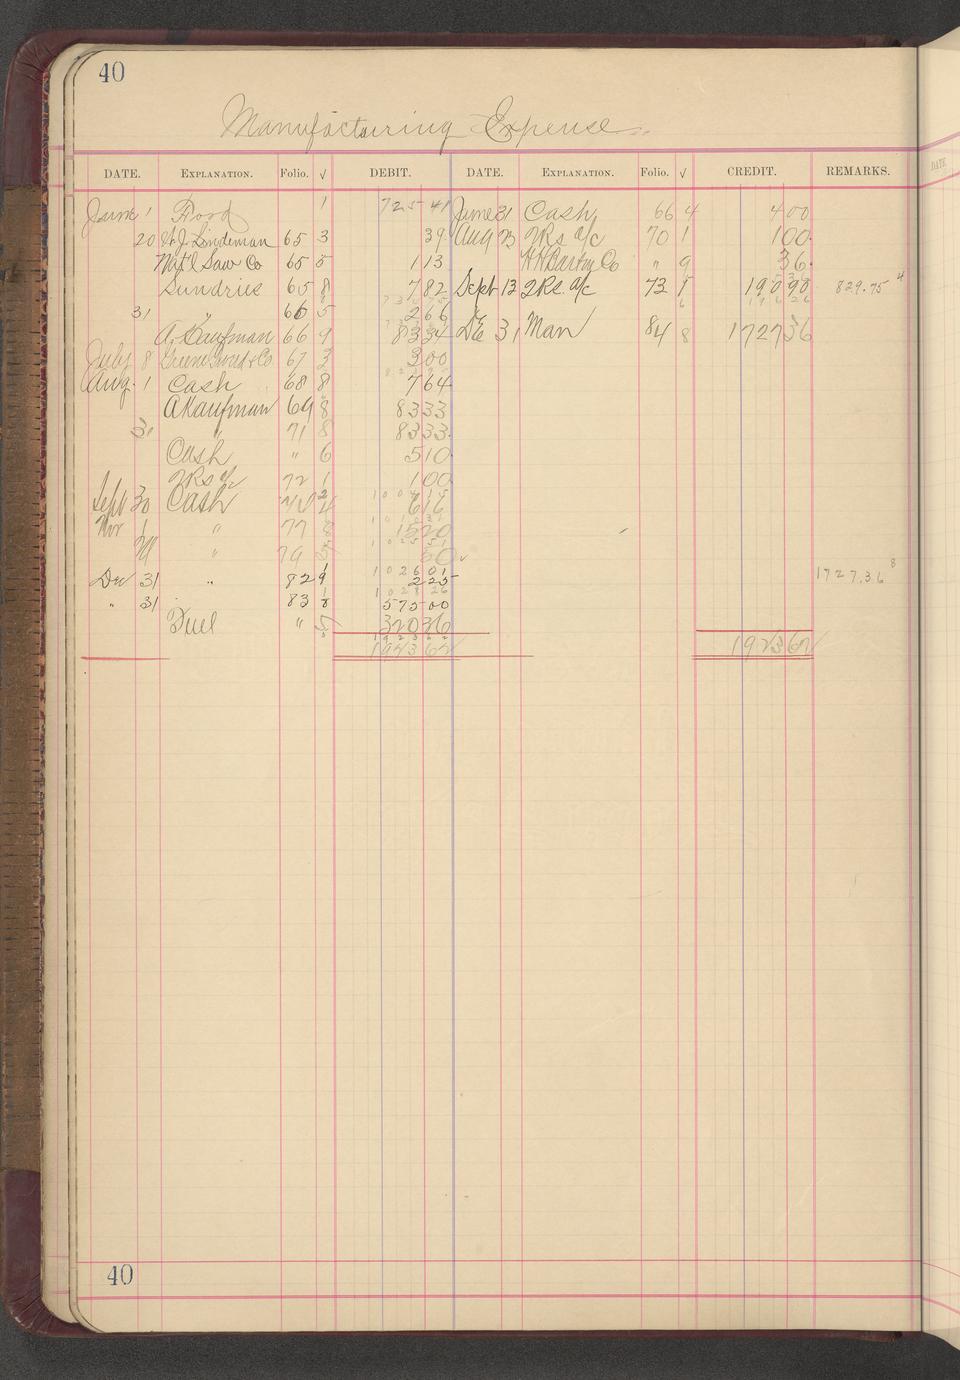 40
Manufacturing Expense
DATE. EXPLANATION. Folio. √ DEBIT. DATE. EXPLANATION. Folio. √ CREDIT. REMARKS.
June 1 1 725 41 June 31 Cash 66 4 4 00
20 Lindeman 65 3 39 Aug 70 1 1 00
Nat'l Saw Co 65 5 1 13 " 9 36
Sundries 65 8 7 82 Sept 13 2Rs. a/c 73 1 190 90 829.75 4
31 " 66 5 2 66
A. Kaufman 66 9 83 34 31 Man 84 8 1727 36
July 8 67 3 3 00
Aug. 1 Cash 68 8 7 64
A Kaufman 69 8 83 33
31 " 71 8 83 33
Cash " 6 5 10
2Rs a/c 72 1 1 00
Sept 30 Cash 6 16
" 77 15 20
" 79 50
Dec 31 " 82 9 2 25 1727.36 8
" 31 83 8 575 00
Fuel " 320 36
1923 62 1923 62
40